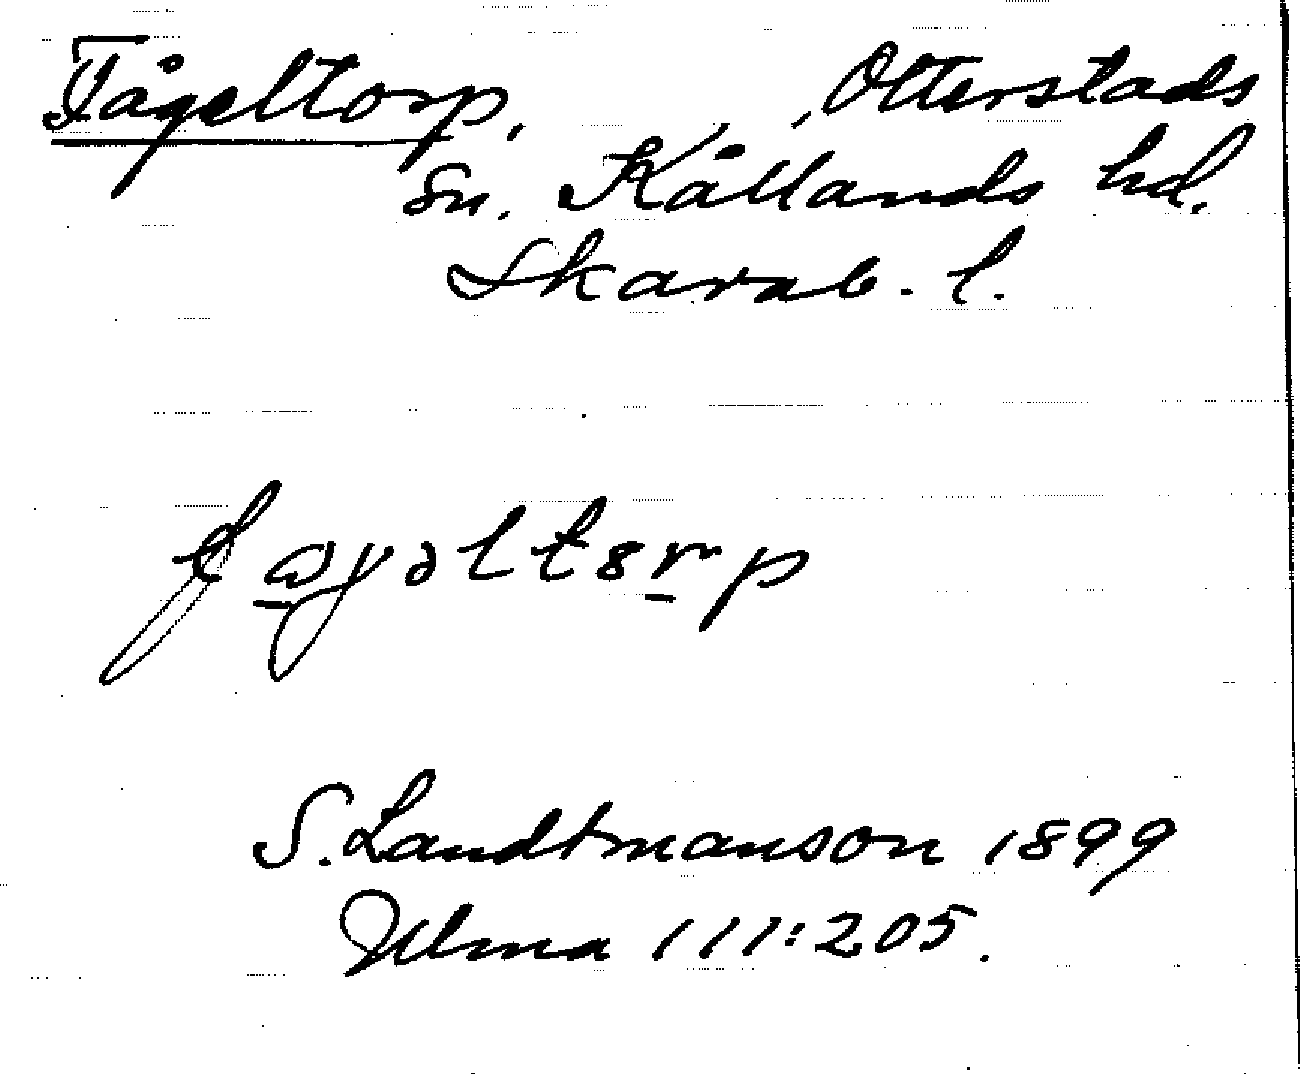 Fågeltorp, Otterstads
sn. Kållands hd.
Skarab. l.
fagəltɜrp
S. Landtmanson 1899
Ulma 111:205.